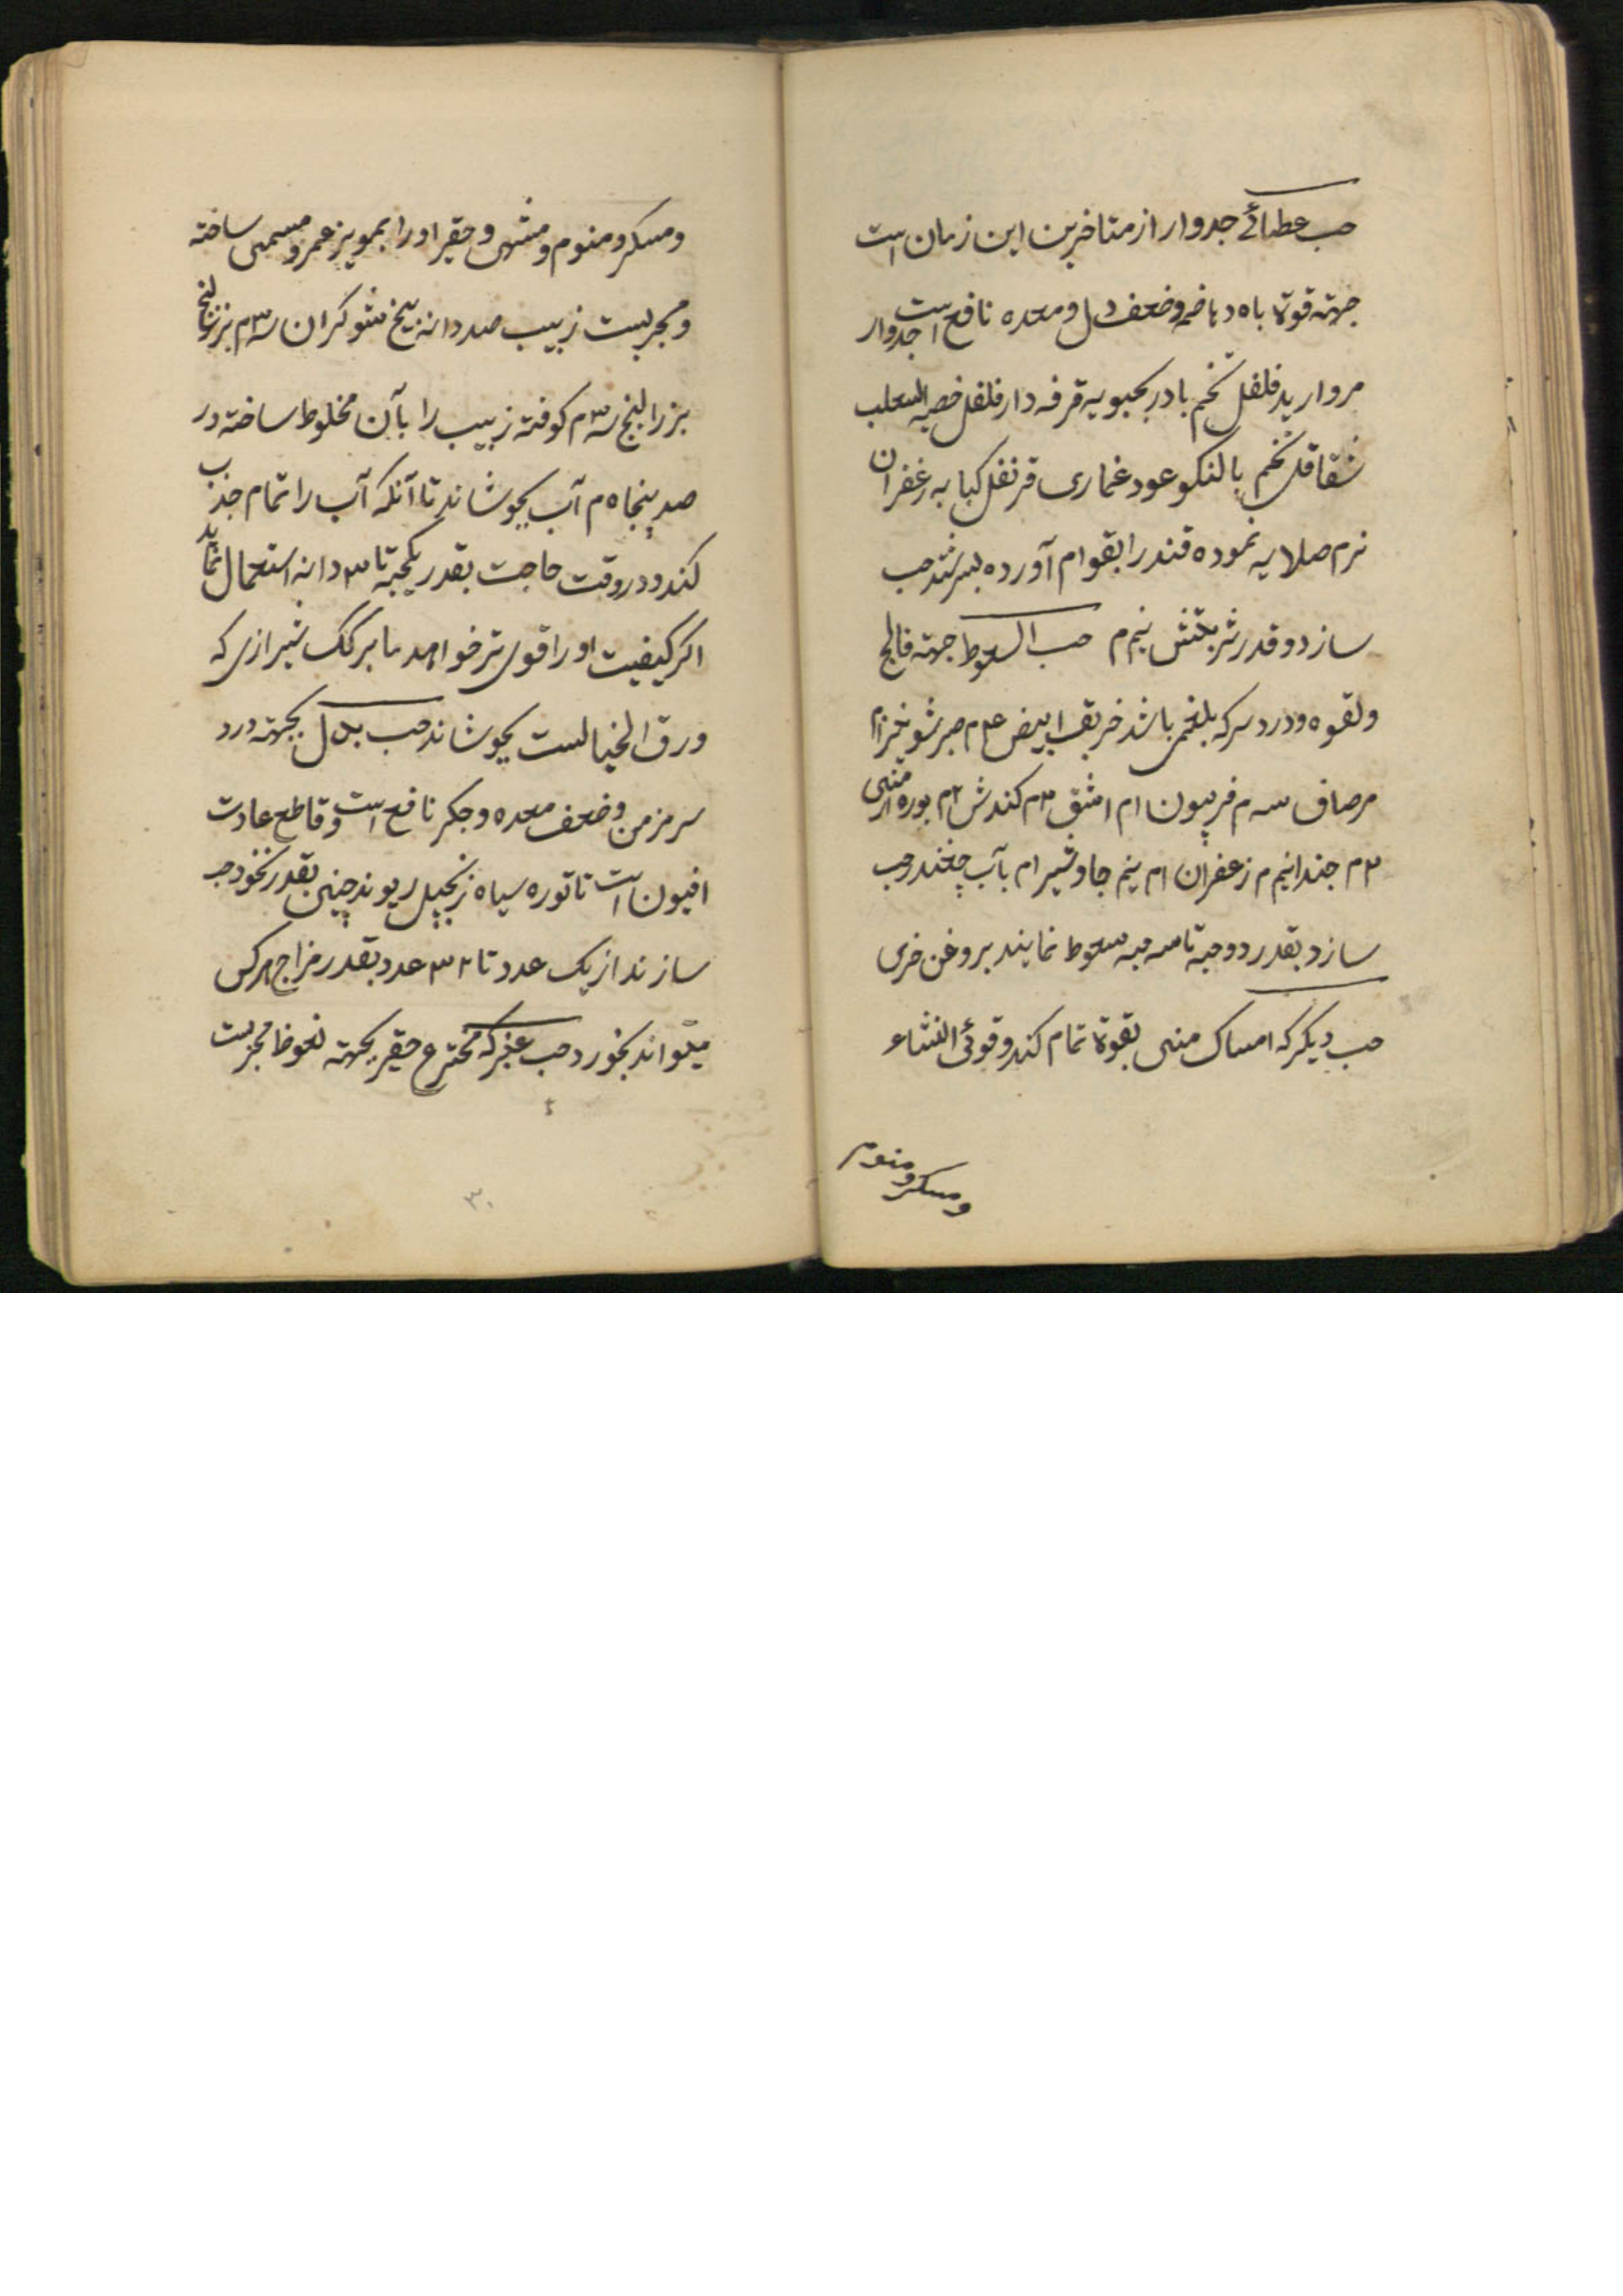 حب عطائے جدوار از متاخرین این زمان است
جهته قوة باه و باضمه وضعف دل و معده نافع است جدوار
مروارید فلفل تخم بادرنجبویه قرفه دارفلفل خصیه الثعلب
شقاقل تخم بالنکو عود غماری قرنفل کبابه زعفران
نرم صلایه نموده قند را بقوام آورده بسرشند حب
سازد و قدر شربتش نیم م حب السعوط جهته فالج
ولقوه و درد سر که بلغمی باشد خربق ابیض ۴ م صبر شونیز ام
مرصاف سه م فربیون ام اشق ۳م کندش ۲م بوره ارمنی
۳م جند انیم م زعفران ام نیم جاوشیر ام بآب چغندر حب
سازد بقدر دو حبه تا سه حبه سعوط نمایند بروغن خری
حب دیکر که امساک منی بقوة تمام کند و قوئ النشاء
ومسکر ومنوم
ومسکر ومنوم ومشهی و حقیر او را بمویز عمر و مسمی ساخته
و مجربست زبیب صد دانه بیخ شوکران ۳م بزرالبنج
بزرالبنج ۳م کوفته زبیب را بآن مخلوط ساخته در
صد پنجاه م آب بجوشاند تا آنکه آب را تمام جذب
کند و در وقت حاجت بقدر یکحبه تا ۳ دانه استعمال نماید
اکر کیفیت او را قوی تر خواهد با برکک شیرازی که
ورق الخیالست بجوشاند حب بدل بجهته درد
سر مزمن وضعف معده وجکر نافع است و قاطع عادت
افیون است تاتوره سیاه زنجبیل ریوند چینی بقدر نخود حب
سازند از یک عدد تا ۳۲ عدد بقدر مزاج هرکس
میتواند بخورد حب عنبر که مخترع حقیر بجهته نعوظ مجربست
۳۰